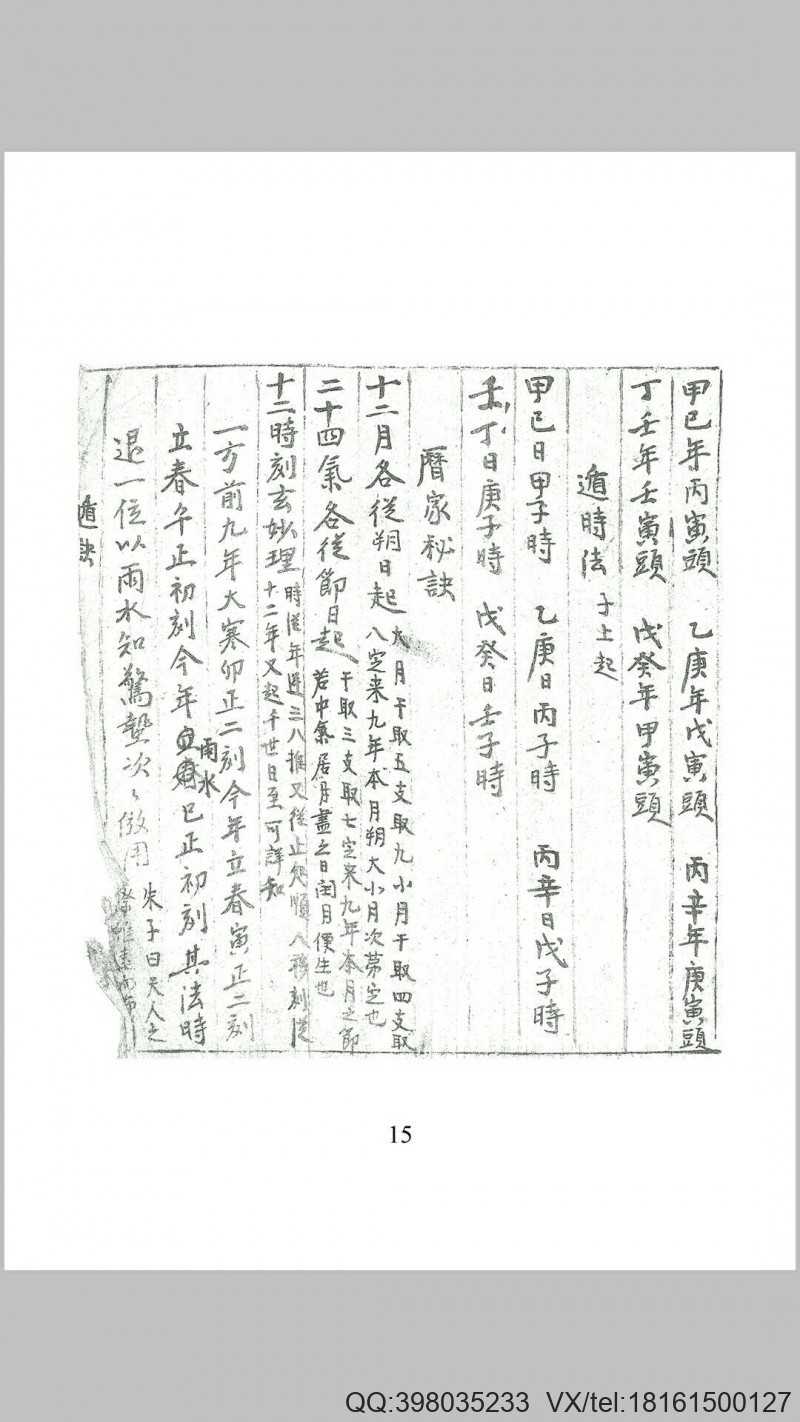 甲己年丙寅頭 乙庚年戊寅頭 丙辛年庚寅頭
丁壬年壬寅頭 戊癸年甲寅頭
遁時法 子上起
甲己日甲子時 乙庚日丙子時 丙辛日戊子時
壬丁日庚子時 戊癸日壬子時
曆家秘訣
十二月各從朔日起 大月干取五支取九小月干取四支取
八定来九年本月朔大小月次第定也
二十四氣各從節日起 干取三支取七定来九年本月之節
若中氣居月盡之日閏月便生也
十二時刻玄妙理 時從年進三八推又從止處順八移刻從
十二年又起千世日至可詳知
一方前九年大寒卯正二刻今年立春寅正二刻
立春午正初刻今年雨水巳正初刻其法時
退一位以雨水知驚蟄次々倣用 朱子曰天人之
遁訣
15
QQ:398035233 VX/tel:18161500127